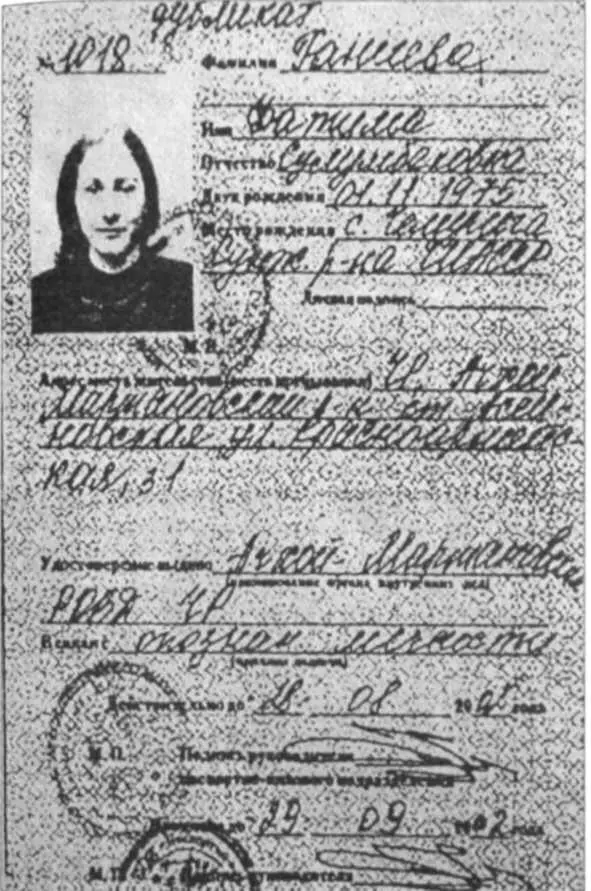 дубликат
№ 1018 Фамилия Ганиева
Имя Фатима
Отчество Сулумбековна
Дата рождения 01.11 1975
Место рождения с.
р-на ЧИАССР
Личная подпись
М. П.
Адрес места жительства (места пребывания) Ч. Ачхой
Мартановский р-н ст. Асси-
новская ул. Красноармейс-
кая, 31
Удостоверение выдано Ачхой-Мартановским
(наименование органа внутренних дел)
РОВД ЧР
В связи с личности
Действительно до 28 08 года
М. П. Подпись руководителя
паспортно-визового подразделения
до 29 09 02 года
М. П. Подпись руководителя